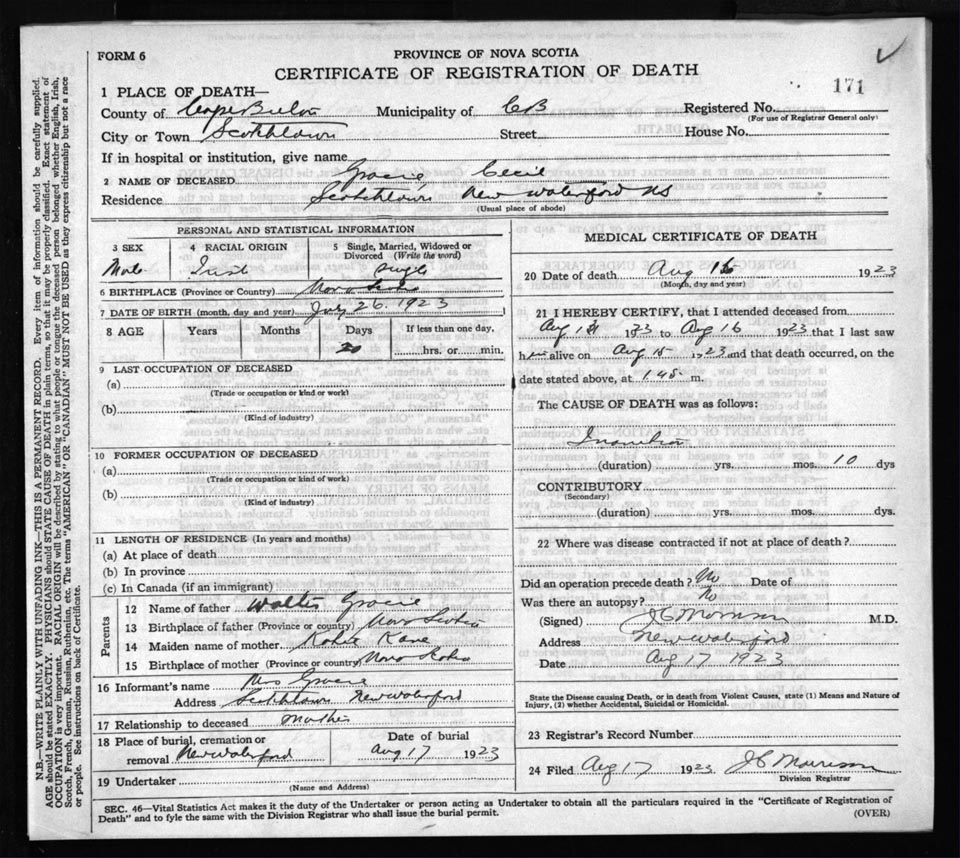 FORM 6
PROVINCE OF NOVA SCOTIA
CERTIFICATE OF REGISTRATION OF DEATH
171
1 PLACE OF DEATH—
County of Cape Breton Municipality of CB Registered No.
(For use of Registrar General only)
City or Town Scotchtown Street House No.
If in hospital or institution, give name
2 NAME OF DECEASED Gracie, Cecil
Residence Scotchtown New Waterford NS
(Usual place of abode)
PERSONAL AND STATISTICAL INFORMATION
3 SEX 4 RACIAL ORIGIN 5 Single, Married, Widowed or Divorced (Write the word)
Male Irish single
6 BIRTHPLACE (Province or Country) Nova Scotia
7 DATE OF BIRTH (month, day and year) July 26. 1923
8 AGE Years Months Days If less than one day,
20 hrs. or min.
9 LAST OCCUPATION OF DECEASED
(a)
(Trade or occupation or kind or work)
(b)
(Kind of industry)
10 FORMER OCCUPATION OF DECEASED
(a)
(Trade or occupation or kind or work)
(b)
(Kind of industry)
11 LENGTH OF RESIDENCE (In years and months)
(a) At place of death
(b) In province
(c) In Canada (if an immigrant)
Parents
12 Name of father Walter Gracie
13 Birthplace of father (Province or country) Nova Scotia
14 Maiden name of mother Kane
15 Birthplace of mother (Province or country) Nova Scotia
16 Informant's name Mrs Gracie
Address Scotchtown New Waterford
17 Relationship to deceased Mother
18 Place of burial, cremation or removal New Waterford Date of burial Aug 17 1923
19 Undertaker
(Name and Address)
MEDICAL CERTIFICATE OF DEATH
20 Date of death Aug 16 1923
(Month, day and year)
21 I HEREBY CERTIFY, that I attended deceased from
Aug 1923 to Aug 16 1923 that I last saw
h alive on Aug 15 1923 and that death occurred, on the
date stated above, at 1.45 m.
The CAUSE OF DEATH was as follows:
Inanition
(duration) yrs. mos. 10 dys
CONTRIBUTORY
(Secondary)
(duration) yrs. mos. dys.
22 Where was disease contracted if not at place of death?
Did an operation precede death? No Date of
Was there an autopsy? No
(Signed) J C Morrison M.D.
Address New Waterford
Date Aug 17 1923
State the Disease causing Death, or in death from Violent Causes, state (1) Means and Nature of
Injury, (2) whether Accidental, Suicidal or Homicidal.
23 Registrar's Record Number
24 Filed Aug 17 1923 J C Morrison
Division Registrar
SEC. 46—Vital Statistics Act makes it the duty of the Undertaker or person acting as Undertaker to obtain all the particulars required in the "Certificate of Registration of
Death" and to fyle the same with the Division Registrar who shall issue the burial permit.
(OVER)
N.B.—WRITE PLAINLY WITH UNFADING INK—THIS IS A PERMANENT RECORD. Every item of information should be carefully supplied.
AGE should be stated EXACTLY. PHYSICIANS should STATE CAUSE OF DEATH in plain terms, so that it may be properly classified. Exact statement of
OCCUPATION is very important. RACIAL ORIGIN will be described by stating to what people or tongue the deceased person belonged whether English, Irish,
Scotch, French, German, Russian, Ruthenian, etc. The terms "AMERICAN" OR "CANADIAN" MUST NOT BE USED as they express citizenship but not a race
or people. See instructions on back of Certificate.